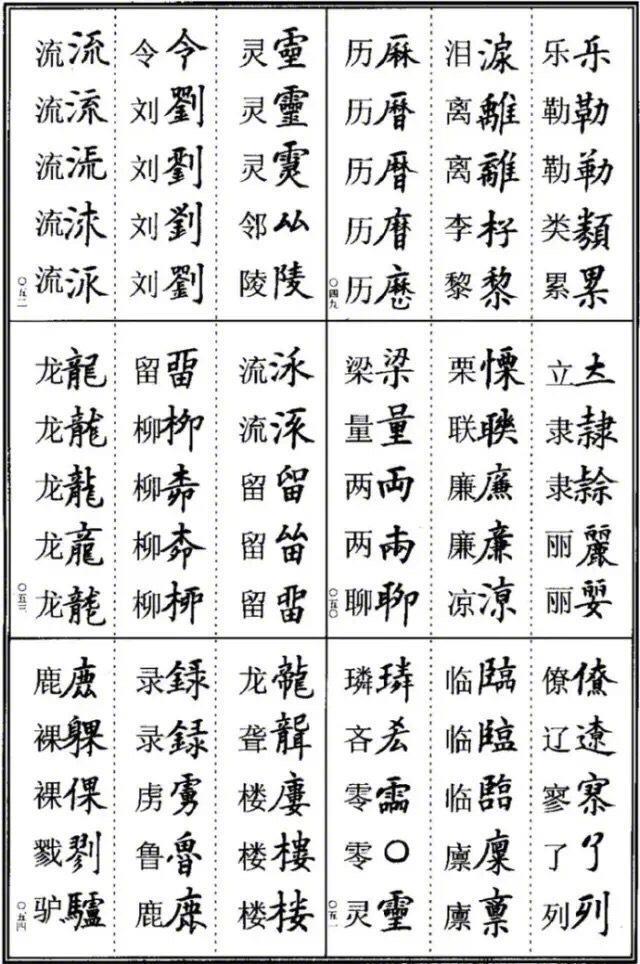 乐乐 勒勒 勒勒 类類 累累
泪淚 离離 离離 李杍 黎黎
历厤 历暦 历暦 历 历歷
〇四九
立 隶隸 隶 丽麗 丽
栗慄 联聮 廉廉 廉廉 凉涼
梁梁 量量 两両 两兩 聊聊
〇五〇
僚僚 辽遼 寥 了了 列列
临臨 临臨 临臨 廪廩 廪稟
璘璘 吝 零 零〇 灵靈
〇五一
灵靈 灵靈 灵 邻厸 陵陵
令令 刘劉 刘劉 刘劉 刘劉
流流 流流 流流 流 流
〇五二
流 流 留留 留 留畱
留畱 柳柳 柳 柳 柳
龙龍 龙龍 龙龍 龙龍 龙龍
〇五三
龙龍 聋聾 楼廔 楼樓 楼楼
录録 录録 虏虜 鲁魯 鹿鹿
鹿鹿 裸躶 裸倮 戮剹 驴驢
〇五四